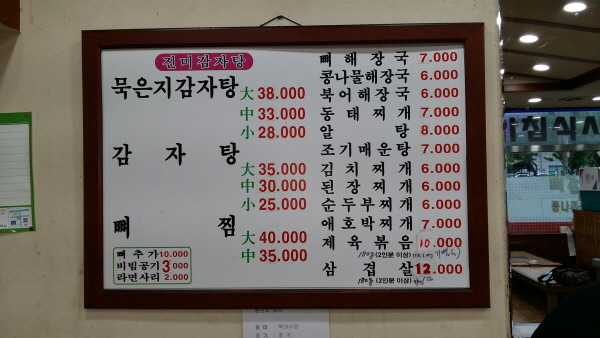 진미감자탕
묵은지감자탕
大 38.000
中 33.000
小 28.000
감자탕
大 35.000
中 30.000
小 25.000
뼈찜
大 40.000
中 35.000
뼈추가 10.000
비빔공기 3 000
라면사리 2.000
뼈해장국 7.000
콩나물해장국 6.000
북어해장국 6.000
동태찌개 7.000
알탕 8.000
조기매운탕 7.000
김치찌개 6.000
된장찌개 6.000
순두부찌개 6.000
애호박찌개 7.000
제육볶음 10.000
180g (2인분 이상)
삼겹살 12.000
180g (2인분 이상)
아침식사